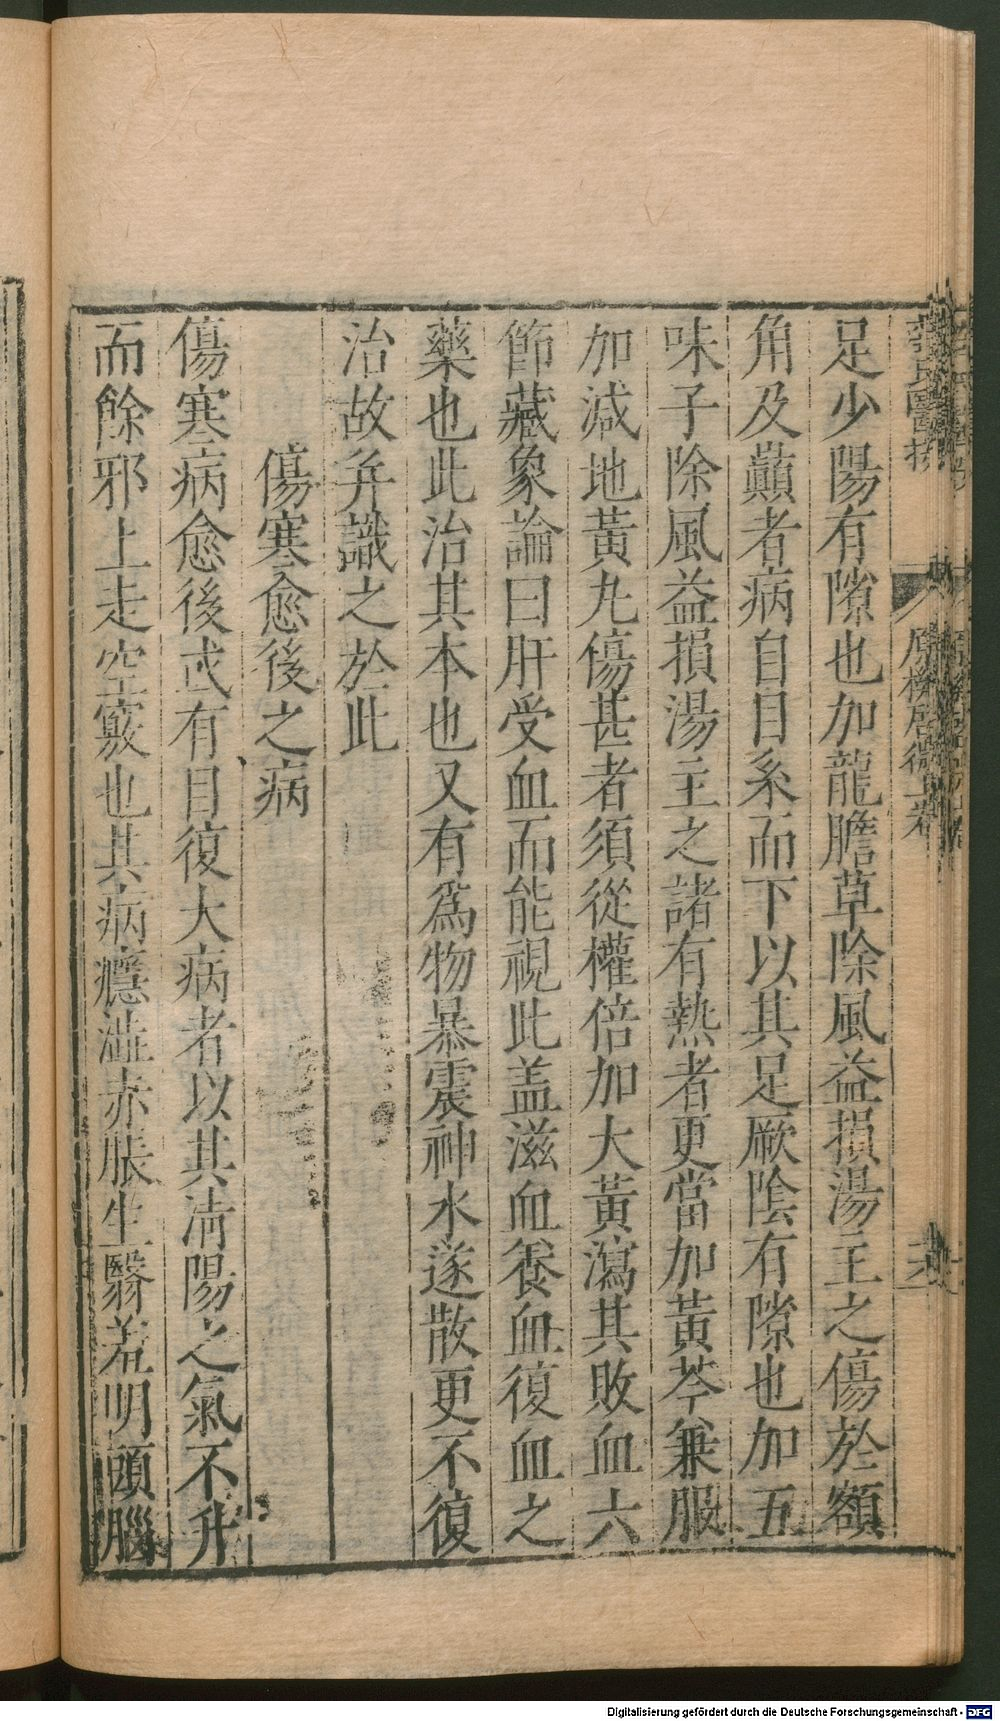 薛氏醫按
原機啓微上卷
足少陽有隙也加龍膽草除風益損湯主之傷於額
角及巔者病自目系而下以其足厥陰有隙也加五
味子除風益損湯主之諸有熱者更當加黃芩兼服
加減地黃丸傷甚者須從權倍加大黃瀉其敗血六
節藏象論曰肝受血而能視此盖滋血養血復血之
藥也此治其本也又有爲物暴震神水遂散更不復
治故并識之於此
傷寒愈後之病
傷寒病愈後或有目復大病者以其清陽之氣不升
而餘邪上走空竅也其病癮澁赤脹生翳羞明頭腦
Digitalisierung gefördert durch die Deutsche Forschungsgemeinschaft - DFG